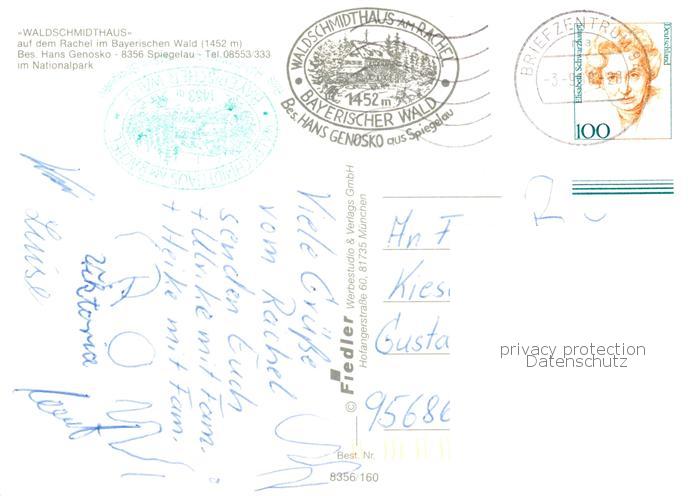 «WALDSCHMIDTHAUS»
auf dem Rachel im Bayerischen Wald (1452 m)
Bes. Hans Genosko - 8356 Spiegelau - Tel. 08553/333
im Nationalpark
WALDSCHMIDTHAUS AM RACHEL
1452 m
BAYERISCHER WALD
Bes. HANS GENOSKO aus Spiegelau
BRIEFZENTRUM
Deutschland
Elisabeth Schwarzhaupt
100
Viele Grüße
vom Rachel
senden Euch
+ Ulrike mit Fam.
+ Heike mit Fam.
Viktoria
Luise
© Fiedler Werbestudio & Verlags GmbH
Hofangerstraße 60, 81735 München
An F
Kies
Gusta
95686
privacy protection
Datenschutz
Best. Nr.
8356/160